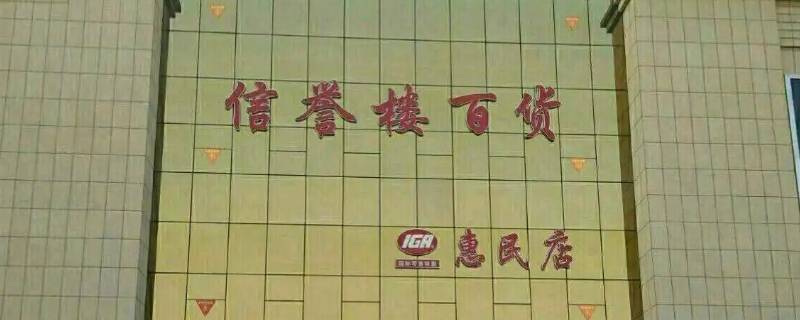 信誉楼百货
IGA 惠民店